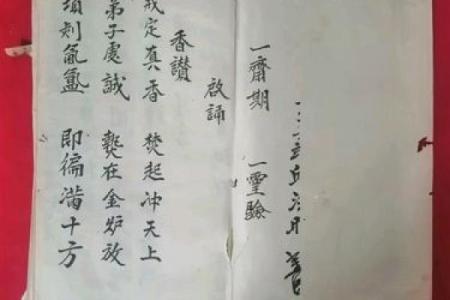 一齋期 一靈驗
啟誦
香讚
戒定真香 焚起冲天上
弟子處誠 爇在金炉放
頃刻氤氳 即徧满十方